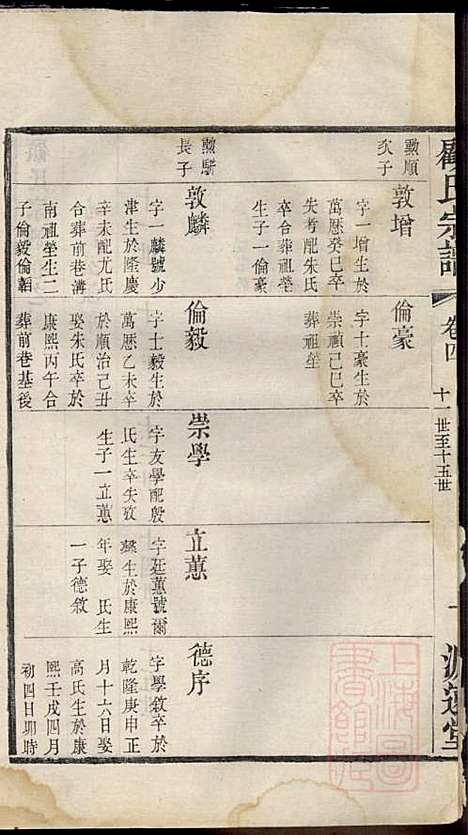 顧氏宗譜
卷四
十一世至十五世
一
源遠堂
勲順
次子
敦增
字一增生於
萬曆癸巳卒
失考配朱氏
卒合葬祖塋
生子一倫豪
倫豪
字士豪生於
崇禎己巳卒
葬祖塋
勲驕
長子
敦麟
字一麟號少
津生於隆慶
辛未配尤氏
合葬前巷溝
南祖塋生二
子倫毅倫韜
倫毅
字士毅生於
萬曆乙未卒
於順治己丑
娶朱氏卒於
康熙丙午合
葬前巷基後
崇學
字友學配殷
氏生卒失攷
生子一立蕙
立蕙
字廷蕙號爾
生於康熙
年娶 氏生
一子德敘
德序
字學敘卒於
乾隆庚申正
月十六日娶
高氏生於康
熙壬戌四月
初四日卯時
上海圖書館藏